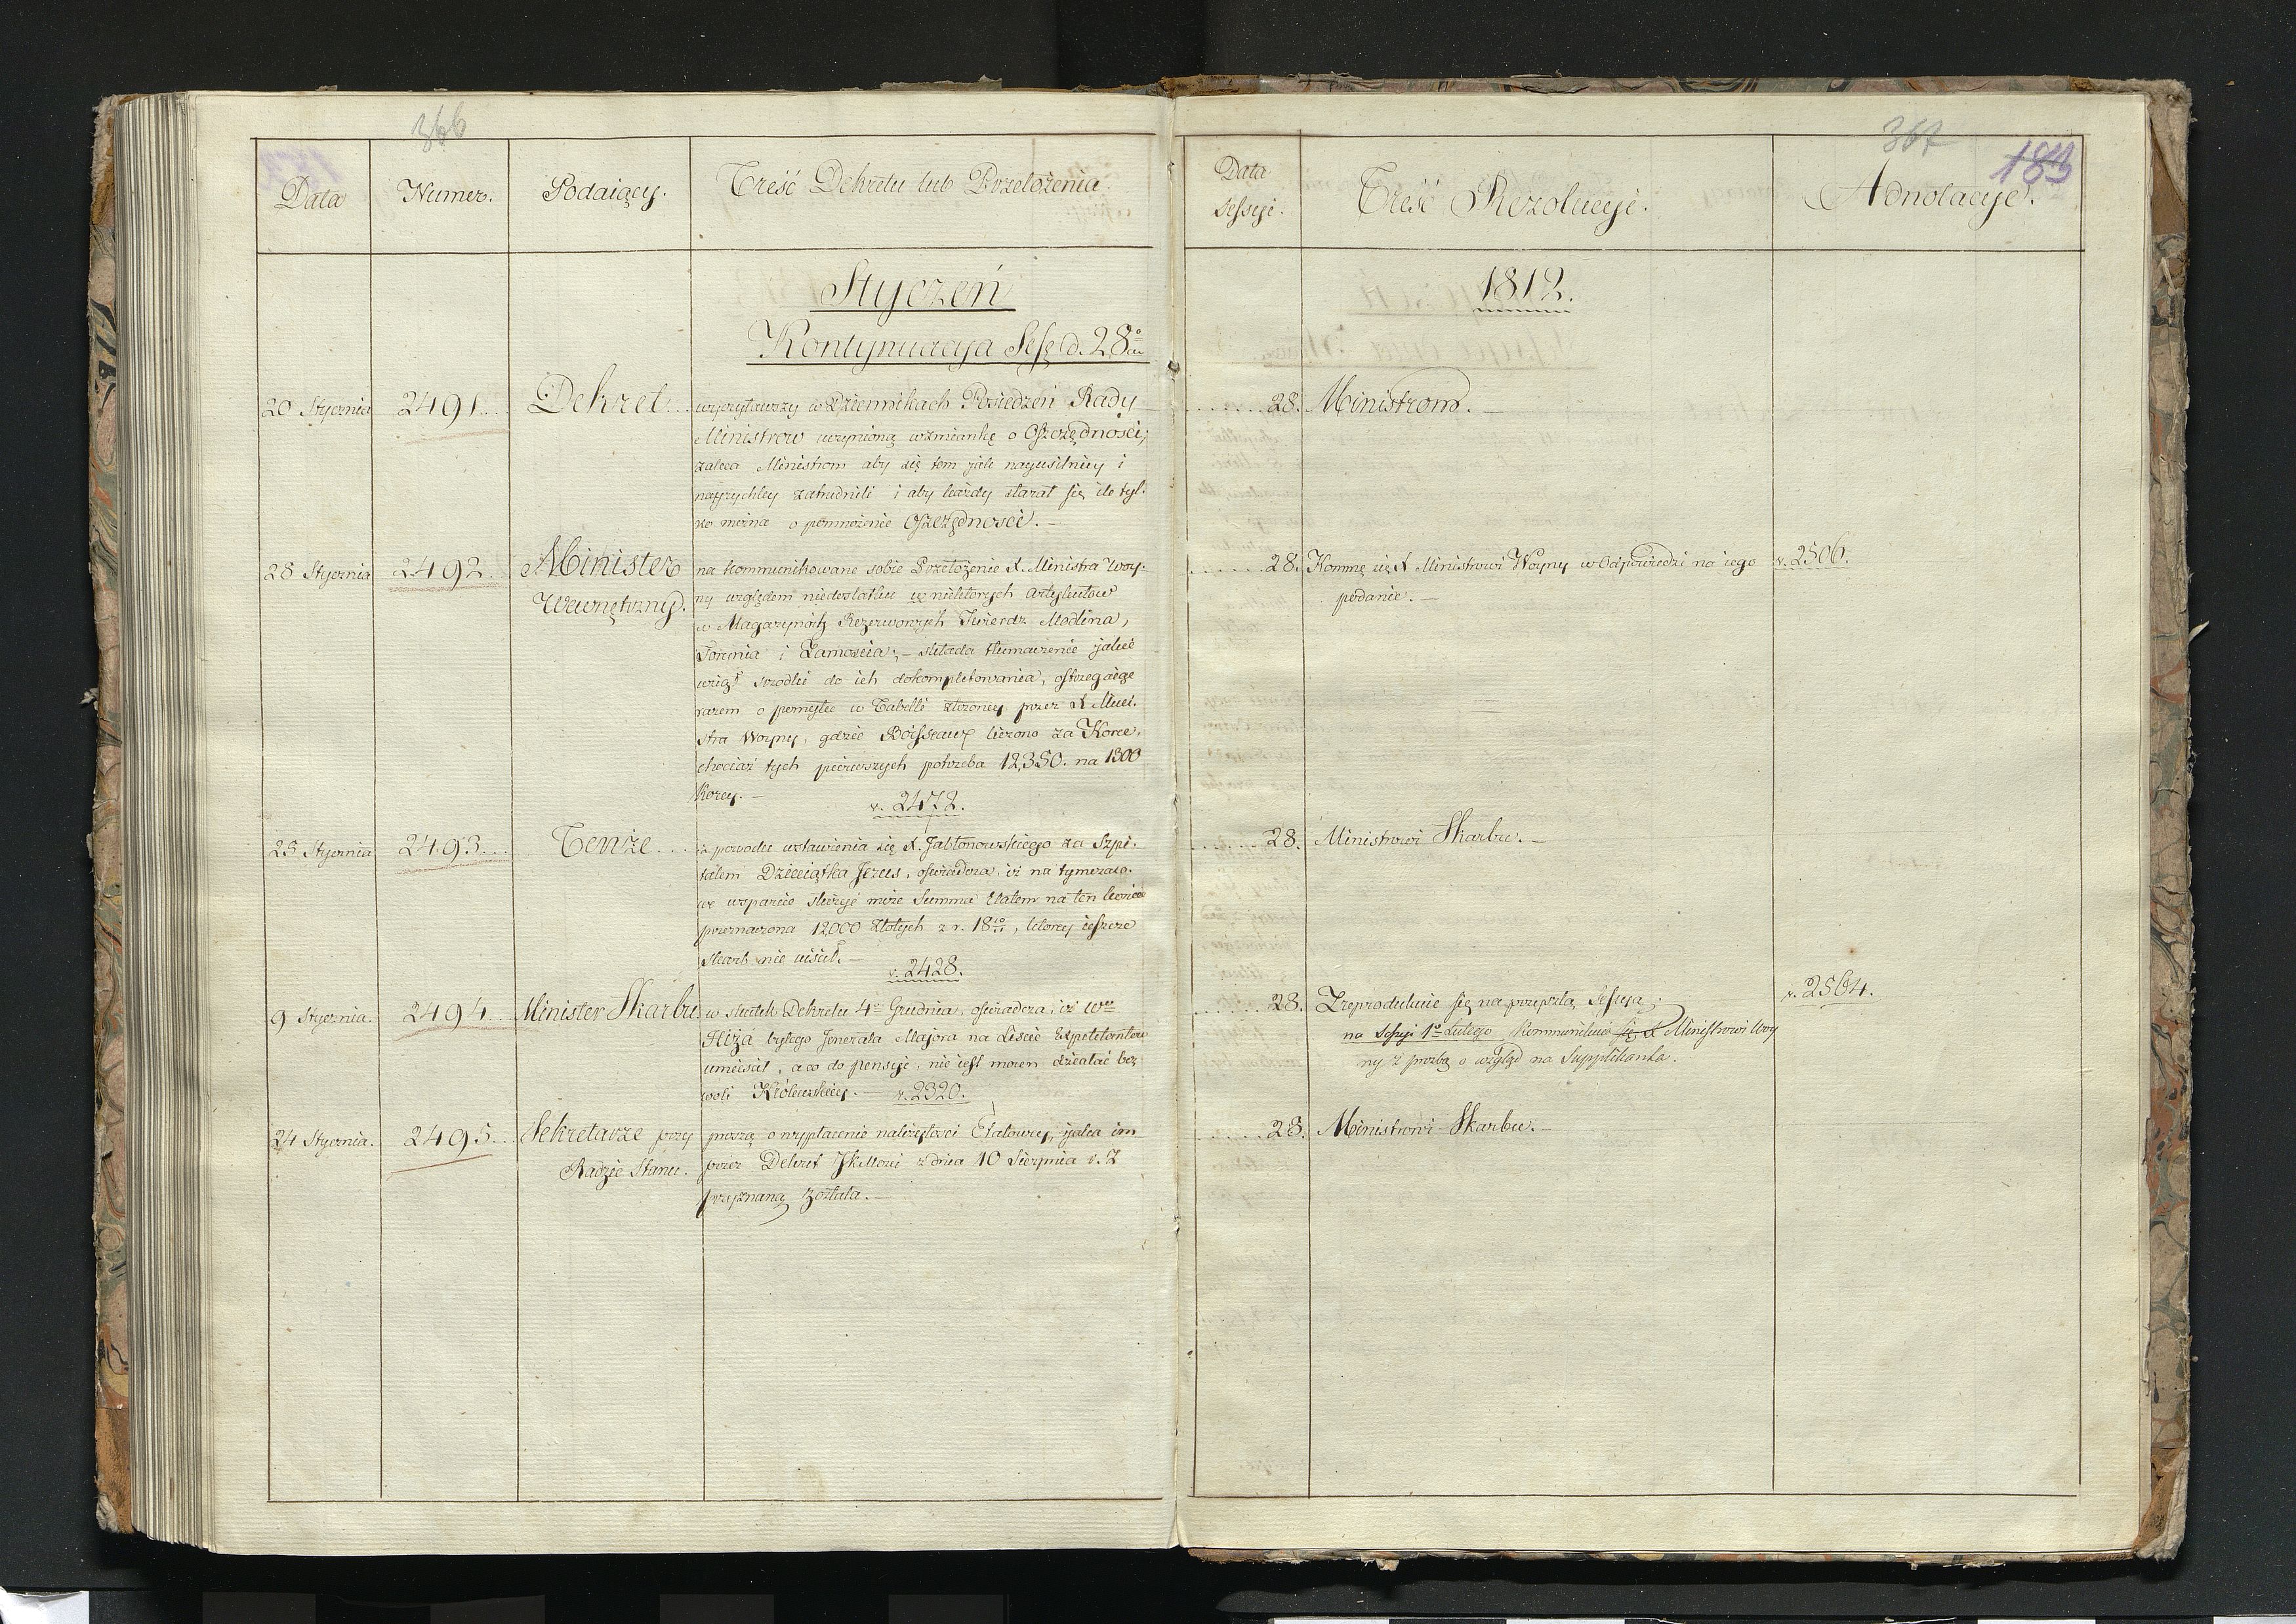 366
Data
Numer.
Podaiący.
Treść Dekretu lub Przełożenia.
Styczeń
Kontynuacya Sess. d. 28º
20 Stycznia
2491...
Dekret...
wyczytawszy w Dziennikach Posiedzeń Rady
Ministrow uczynioną wzmiankę o Oszczędności,
zaleca Ministrom aby się tem jak nayusilniey i
nayrychley zatrudnili i aby każdy starał się ile tyl-
ko można o pomnożenie Oszczędności. —
28 Stycznia
2492.
Minister
Wewnętrzny.
na kommunikowane sobie Przełożenie X. Ministra Woy-
ny względem niedostatku w niektorych Artykułow
w Magazynach Rezerwowych Twierdz Modlina,
Torunia i Zamościa; — składa tłumaczenie jakie
wziął srodki do ich dokompletowania, ostrzegaiąc
razem o pomyłce w Tabelli złożoney przez X Mini-
stra Woyny, gdzie Boisseaux liczono za Korce,
chociaż tych pierwszych potrzeba 12,350. na 1300
Korcy. —
v. 2472.
25 Stycznia
2493...
Tenże...
z powodu wstawienia się X. Jabłonowskiego za Szpi-
talem Dzieciątka Jezus, oświadcza, iż na tymczaso-
we wsparcie służyć może Summa Etatem na ten koniec
przeznaczona 12000 Złotych z r. 18 10/11, ktorey ieszcze
Skarb nie uiścił. —
v. 2428.
9 Stycznia.
2494...
Minister Skarbu
w skutek Dekretu 4º Grudnia, oświadcza, iż
Hiża byłego Jenerała Majora na Liście Expektantow
umieścił, a co do pensyi, nie iest mocen działać bez
woli Królewskiey. — v. 2320.
24 Stycznia.
2495...
Sekretarze przy
Radzie Stanu.
proszą o wypłacenie należytości Etatowey, jaka im
przez Dekret JKMości z dnia 10 Sierpnia r. z
przyznaną została. —
367
183
Data
Sessyi.
Treść Rezolucyi.
Adnotacye.
1812.
...... 28.
Ministrom. —
...... 28.
Komnę się X Ministrowi Woyny w Odpowiedzi na iego
podanie. —
v. 2506.
...... 28.
Ministrowi Skarbu. —
...... 28.
Zreprodukuie się na przyszłą Sessyą.
na Sessyi 1º Lutego Kommunikuie się X Ministrowi Woy
ny z prozbą o wzgląd na Supplikanta.
v. 2564.
...... 28.
Ministrowi Skarbu. —